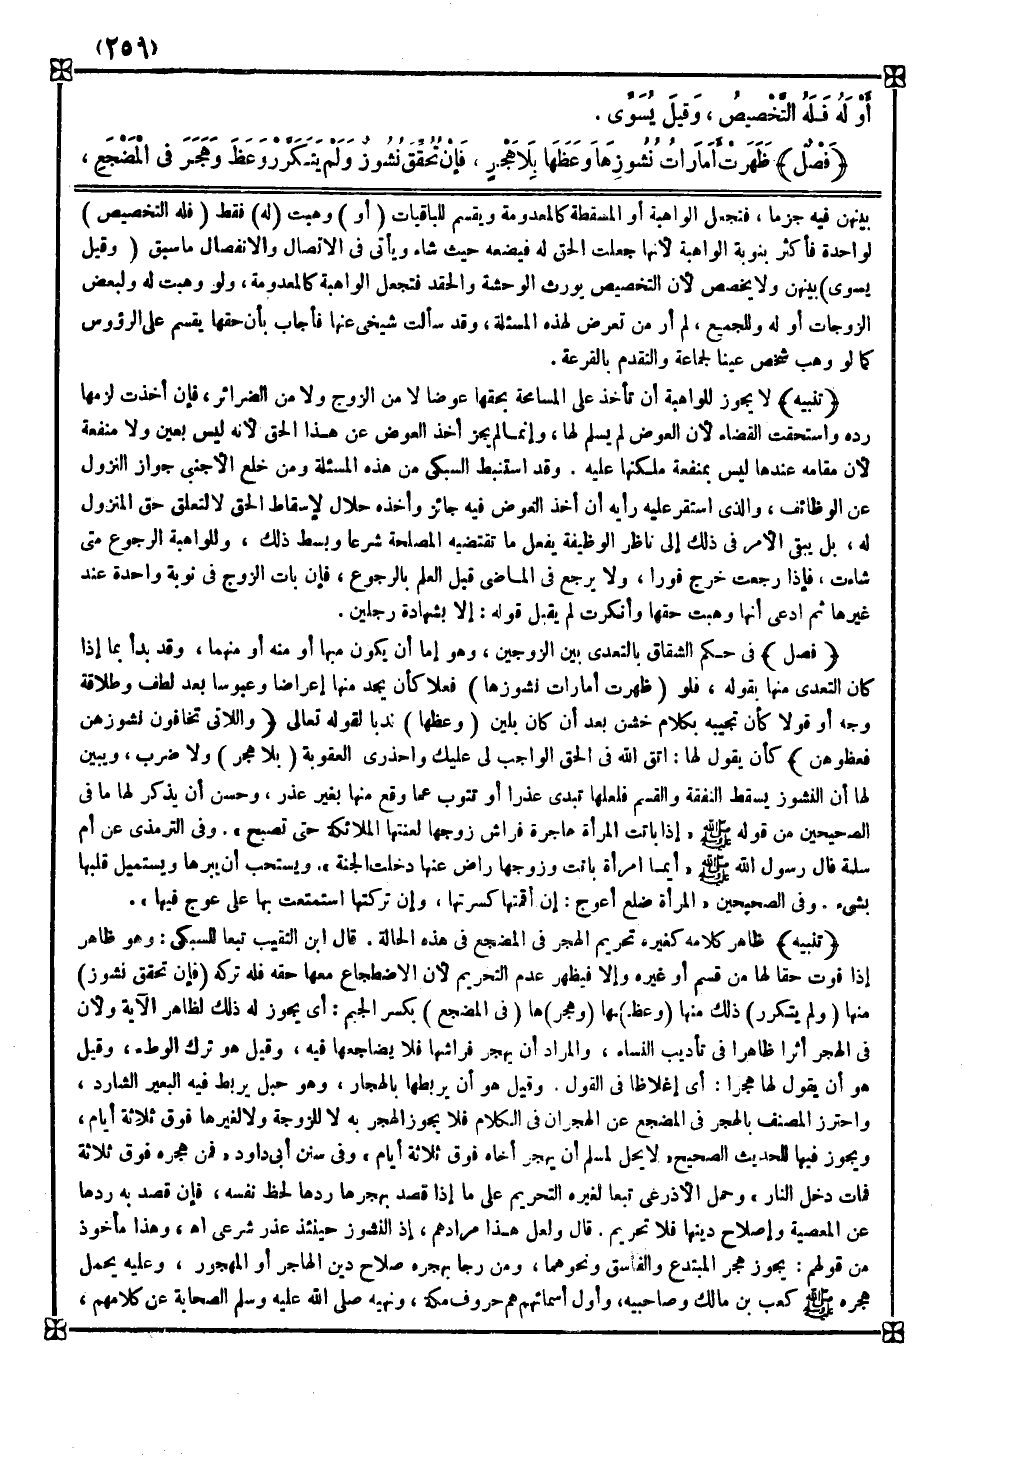 (٢٥٩)
أَوْ لَهُ فَلَهُ التَّخْصِيصُ ، وَقِيلَ يُسَوَّى .
﴿ فَصْلٌ ﴾ ظَهَرَتْ أَمَارَاتُ نُشُوزِهَا وَعَظَهَا بِلَا هَجْرٍ ، فَإِنْ تُحُقِّقَ نُشُوزٌ وَلَمْ يَتَكَرَّرْ وَعَظَ وَهَجَرَ فِى الْمَضْجَعِ ،
بينهن فيه جزما ، فتجعل الواهبة أو المسقطة كالمعدومة ويقسم للباقيات ( أو ) وهبت (له) فقط ( فله التخصيص )
لواحدة فأكثر بنوبة الواهبة لأنها جعلت الحق له فيضعه حيث شاء ويأتى فى الاتصال والانفصال ماسبق ( وقيل
يسوى) بينهن ولايخصص لأن التخصيص يورث الوحشة والحقد فتجعل الواهبة كالمعدومة ، ولو وهبت له ولبعض
الزوجات أو له وللجميع ، لم أر من تعرض لهذه المسئلة ، وقد سألت شيخى عنها فأجاب بأن حقها يقسم على الرؤوس
كما لو وهب شخص عينا لجماعة والتقدم بالقرعة .
﴿ تنبيه ﴾ لا يجوز للواهبة أن تأخذ على المسامحة بحقها عوضا لا من الزوج ولا من الضرائر ، فإن أخذت لزمها
رده واستحقت القضاء لأن العوض لم يسلم لها ، وإنما لم يجز أخذ العوض عن هذا الحق لأنه ليس بعين ولا منفعة
لأن مقامه عندها ليس بمنفعة ملكتها عليه . وقد استنبط السبكى من هذه المسئلة ومن خلع الأجنبى جواز النزول
عن الوظائف ، والذى استقر عليه رأيه أن أخذ العوض فيه جائز وأخذه حلال لإسقاط الحق لالتعلق حق المنزول
له ، بل يبقى الأمر فى ذلك إلى ناظر الوظيفة يفعل ما تقتضيه المصلحة شرعا وبسط ذلك ، وللواهبة الرجوع متى
شاءت ، فإذا رجعت خرج فورا ، ولا يرجع فى الماضى قبل العلم بالرجوع ، فإن بات الزوج فى نوبة واحدة عند
غيرها ثم ادعى أنها وهبت حقها وأنكرت لم يقبل قوله : إلا بشهادة رجلين .
﴿ فصل ﴾ فى حكم الشقاق بالتعدى بين الزوجين ، وهو إما أن يكون منها أو منه أو منهما ، وقد بدأ بما إذا
كان التعدى منها بقوله ، فلو ( ظهرت أمارات نشوزها ) فعلا كأن يجد منها إعراضا وعبوسا بعد لطف وطلاقة
وجه أو قولا كأن تجيبه بكلام خشن بعد أن كان بلين ( وعظها ) ندبا لقوله تعالى ﴿ واللاتى تخافون نشوزهن
فعظوهن ﴾ كأن يقول لها : اتق الله فى الحق الواجب لى عليك واحذرى العقوبة ( بلا هجر ) ولا ضرب ، ويبين
لها أن النشوز يسقط النفقة والقسم فلعلها تبدى عذرا أو تتوب عما وقع منها بغير عذر ، وحسن أن يذكر لها ما فى
الصحيحين من قوله ﷺ « إذا باتت المرأة هاجرة فراش زوجها لعنتها الملائكة حتى تصبح » . وفى الترمذى عن أم
سلمة قال رسول الله ﷺ « أيما امرأة باتت وزوجها راض عنها دخلت الجنة » . ويستحب أن يبرها ويستميل قلبها
بشىء . وفى الصحيحين « المرأة ضلع أعوج : إن أقمتها كسرتها ، وإن تركتها استمتعت بها على عوج فيها » .
﴿ تنبيه ﴾ ظاهر كلامه كغيره تحريم الهجر فى المضجع فى هذه الحالة . قال ابن النقيب تبعا للسبكى : وهو ظاهر
إذا فوت حقا لها من قسم أو غيره وإلا فيظهر عدم التحريم لأن الاضطجاع معها حقه فله تركه (فإن تحقق نشوز)
منها ( ولم يتكرر) ذلك منها (وعظ)ـها (وهجر)ها ( فى المضجع ) بكسر الجيم : أى يجوز له ذلك لظاهر الآية ولأن
فى الهجر أثرا ظاهرا فى تأديب النساء ، والمراد أن يهجر فراشها فلا يضاجعها فيه ، وقيل هو ترك الوطء ، وقيل
هو أن يقول لها هجرا : أى إغلاظا فى القول . وقيل هو أن يربطها بالهجار ، وهو حبل يربط فيه البعير الشارد ،
واحترز المصنف بالهجر فى المضجع عن الهجران فى الكلام فلا يجوز الهجر به لا للزوجة ولا لغيرها فوق ثلاثة أيام ،
ويجوز فيها للحديث الصحيح « لايحل لمسلم أن يهجر أخاه فوق ثلاثة أيام » وفى سنن أبى داود « فمن هجره فوق ثلاثة
فمات دخل النار » وحمل الأذرعى تبعا لغيره التحريم على ما إذا قصد بهجرها ردها لحظ نفسه ، فإن قصد به ردها
عن المعصية وإصلاح دينها فلا تحريم . قال ولعل هذا مرادهم ، إذ النشوز حينئذ عذر شرعى اه ، وهذا مأخوذ
من قولهم : يجوز هجر المبتدع والفاسق ونحوهما ، ومن رجا بهجره صلاح دين الهاجر أو المهجور ، وعليه يحمل
هجره ﷺ كعب بن مالك وصاحبيه، وأول أسمائهم هم حروف مكة ، ونهيه صلى الله عليه وسلم الصحابة عن كلامهم ،